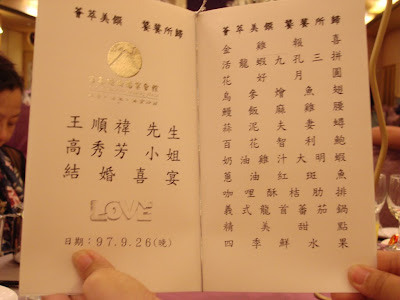 薈萃美饌 饕餮所歸
王順禕 先生
高秀芳 小姐
結婚喜宴
LOVE
日期：97.9.26(晚)
薈萃美饌 饕餮所歸
金雞報喜
活龍蝦九孔三拼
花好月圓
烏參燴魚翅
鰻飯麻雞腰
蒜泥夫妻蟳
百花智利鮑
奶油雞汁大明蝦
蔥油紅斑魚
咖哩酥桔肋排
義式龍首蕃茄鍋
精美甜點
四季鮮水果